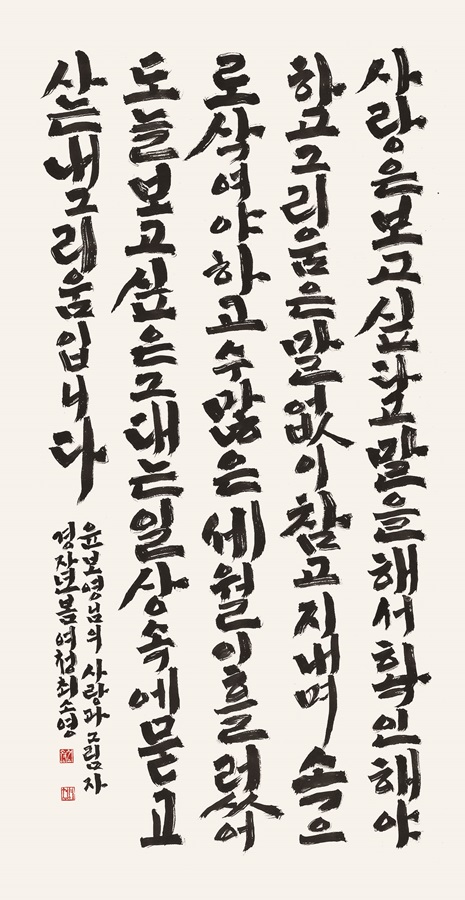 사랑은보고싶다고말을해서확인해야
하고그리움은말없이참고지내며속으
로삭여야하고수많은세월이흘렀어
도늘보고싶은그대는일상속에묻고
사는내그리움입니다
윤보영님의 사랑과 그림자
경자년봄 여청 최소영